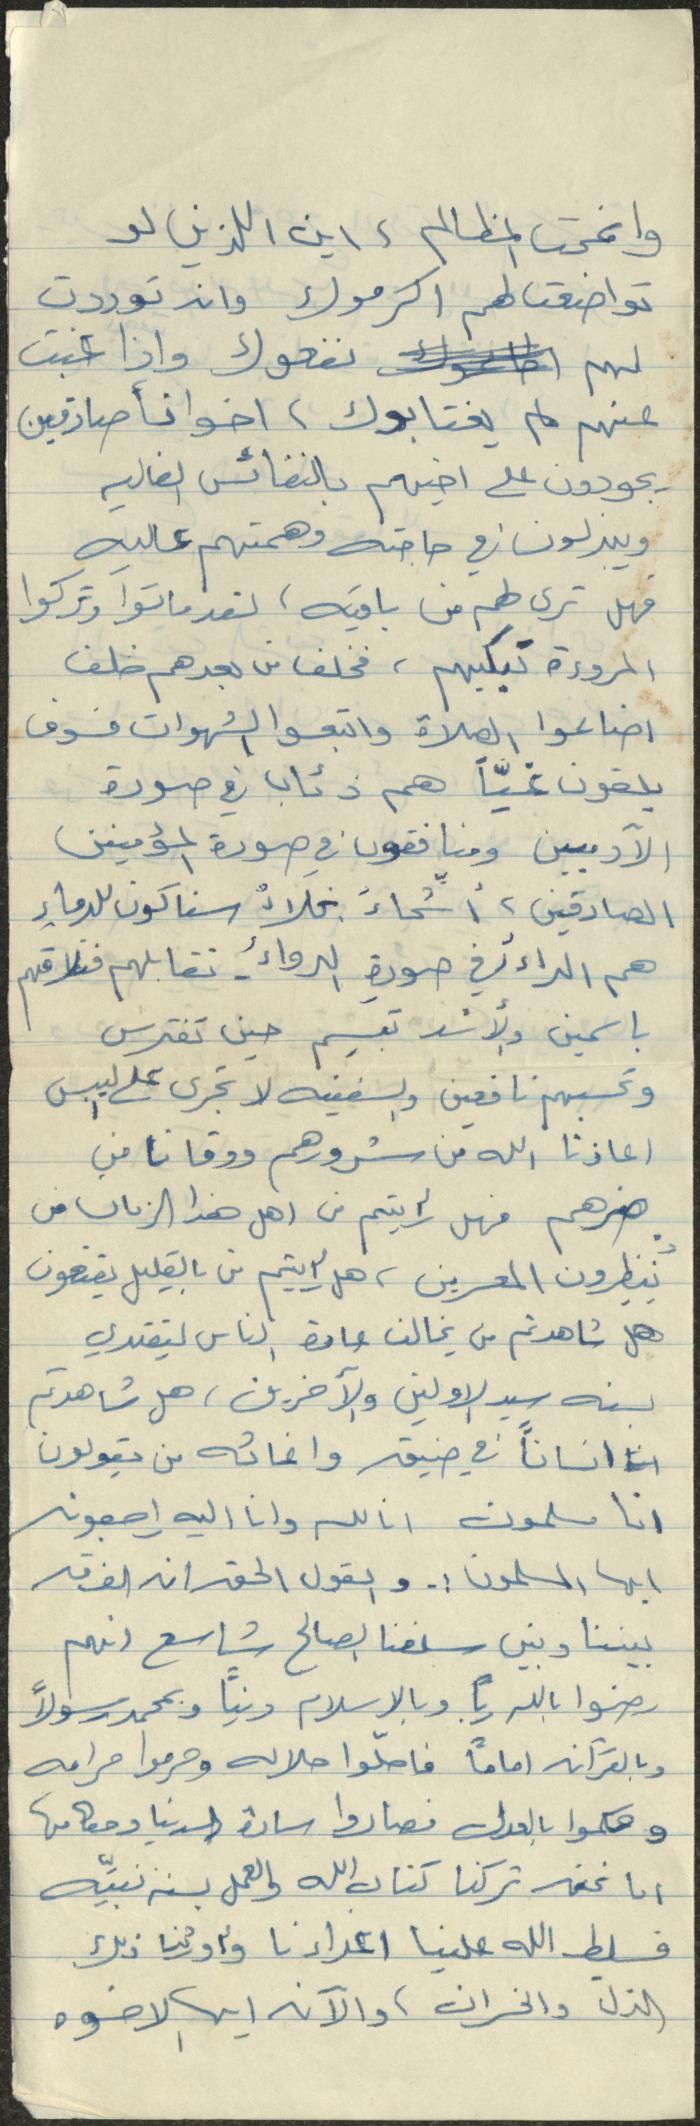 وانمحت المظالم ، اين اللذين لو
تواضعت لهم اكرموك وان توددت
لهم نفعوك واذا غبت
عنهم لم يغتابوك ، اخواناً صادقين
يجودون على اخيهم بالنفائس الغاليه
ويبذلون في حاجته وهمتهم عاليه
فهل ترى لهم من باقيه ، لقد ماتوا وتركوا
المروءة تبكيهم ، فخلف من بعدهم خلف
اضاعوا الصلاة واتبعوا الشهوات فسوف
يلقون غيّاً هم ذئاب في صورة
الآدميين ومنافقون في صورة المؤمنين
الصادقين ، أشحاءَ بخلاءُ سفاكون للدماءِ
هم الداء في صورة الدواء . تقابلهم فتلاقهم
باسمين والأسد تبسم حين تفترس
وتحسبهم نافعين والسفينه لا تجري على اليبس
اعاذنا الله من شرورهم ووقانا من
ضرهم فهل رأيتم من اهل هذا الزمان من
يُنظرون المعسرين ، هل رأيتم من بالقليل يقنعون
هل شاهدتم من يخالف عادة الناس ليقتدي
بسنه سيد الاولين والآخرين ، هل شاهدتم
انساناً في ضيق واغاثه من يقولون
انا مسلمون انا لله وانا اليه راجعون
ايها المسلمون :. والقول الحق ان الفرق
بيننا وبين سلفنا الصالح شاسع انهم
رضوا بالله رباً وبالاسلام ديناً وبمحمد رسولاً
وبالقرآن اماماً فاحلّوا حلاله وحرموا حرامه
وحكموا بالعدل فصاروا سادة الدنيا وحكامها
اما نحن تركنا كتاب الله والعمل بسنة نبيّه
فسلط الله علينا اعداءنا وأورثنا ذلك
الذل والخسران ، والآن ايها الاخوه